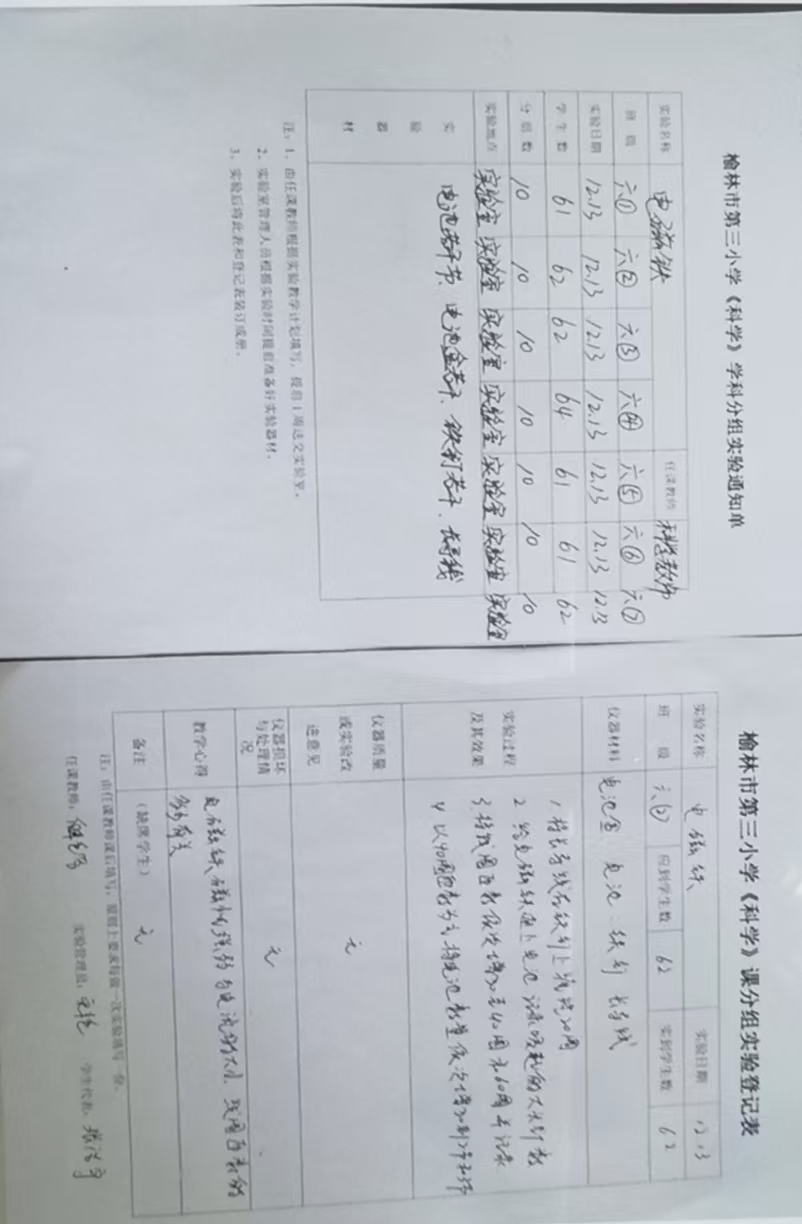 榆林市第三小学《科学》学科分组实验通知单
实验名称 电磁铁 任课教师 科学教师
班级 六① 六② 六③ 六④ 六⑤ 六⑥ 六⑦
实验日期 12.13 12.13 12.13 12.13 12.13 12.13 12.13
学生数 61 62 62 64 61 61 62
分组数 10 10 10 10 10 10 10
实验地点 实验室 实验室 实验室 实验室 实验室 实验室 实验室
实验器材 电池若干节、电池盒若干、铁钉若干、长导线
注:1、由任课教师根据实验教学计划填写,提前1周送交实验室。
2、实验室管理人员根据实验时间提前准备好实验器材。
3、实验后将此表和登记表装订成册。
榆林市第三小学《科学》课分组实验登记表
实验名称 电磁铁 实验日期 12.13
班级 六② 应到学生数 62 实到学生数 62
仪器材料 电池盒 电池 铁钉 长导线
实验过程及其效果
1 将长导线在铁钉上绕 20圈
2 给电磁铁 上电池 记录吸起的大头针数
3 将线圈匝数依次增加至40圈和60圈并记录
4 以40圈 将电池数量依次增加到2节和3节
仪器质量或实验改进意见 无
仪器损坏与处理情况 无
教学心得 电磁铁磁性的强弱与电流的大小、线圈匝数的多少有关
备注 (缺席学生) 无
注:由任课教师课后填写,原则上要求每做一次实验填写一份。
任课教师: 实验管理员: 学生代表: